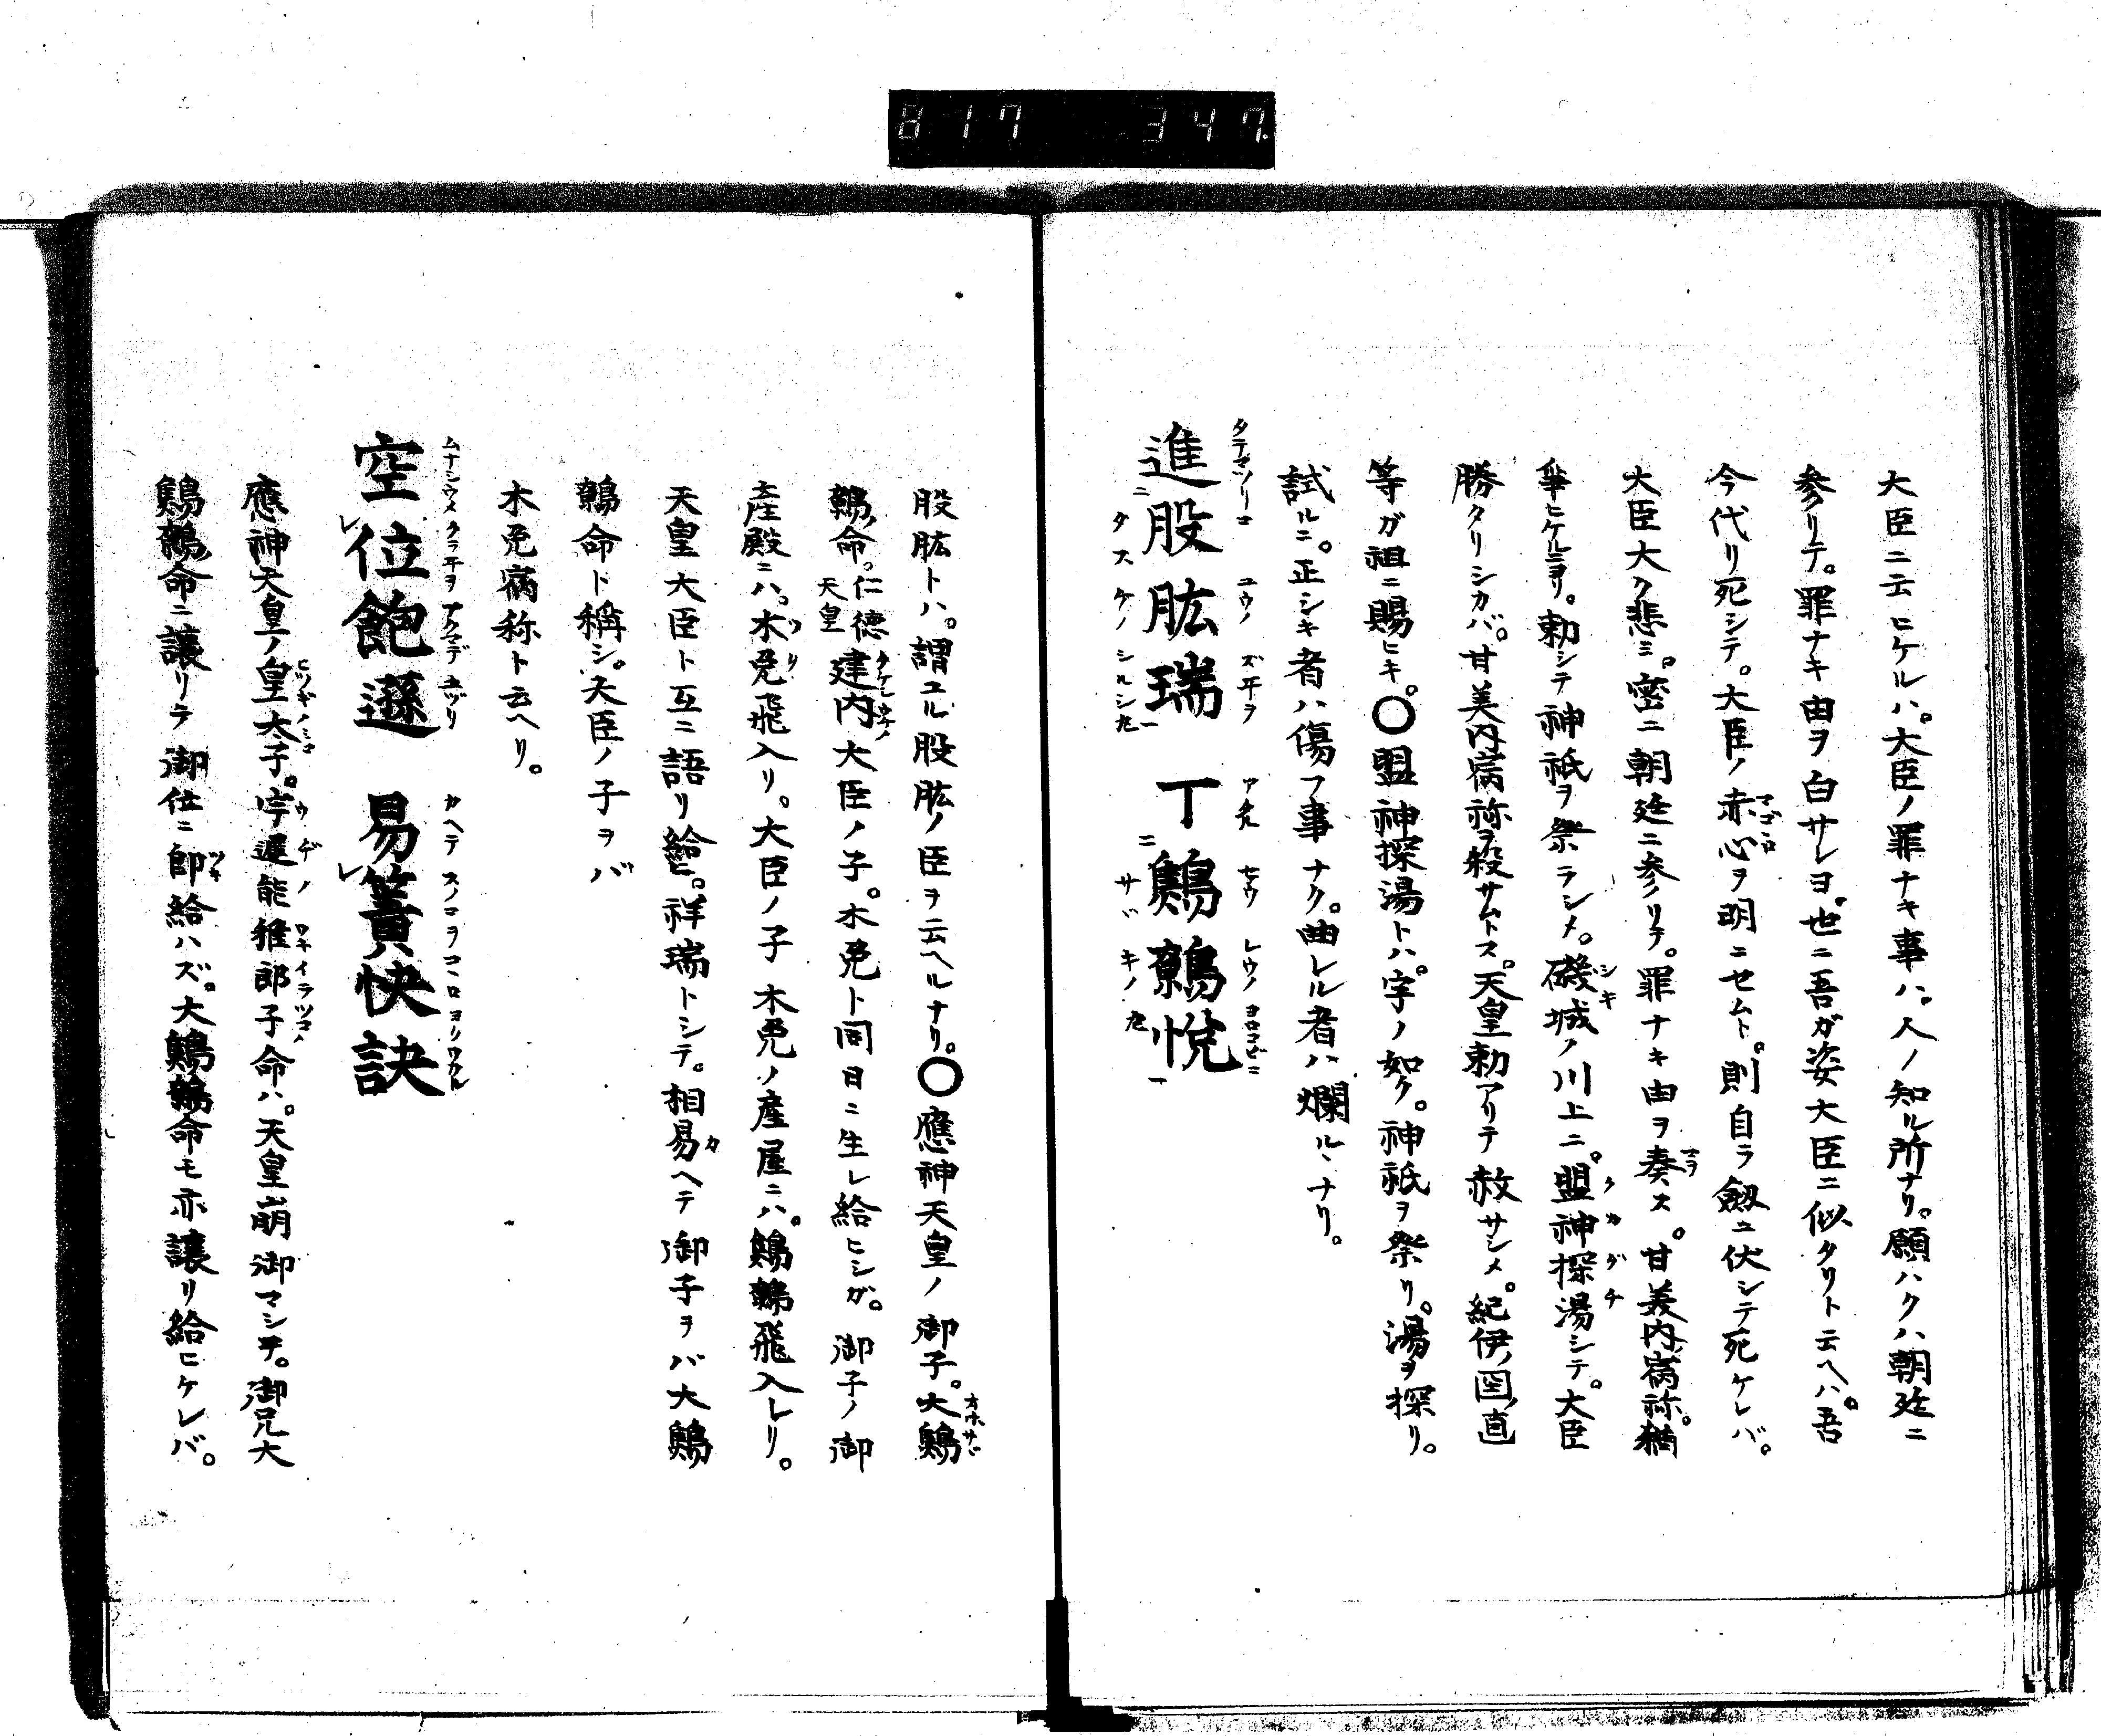 817 347
大臣ニ云ヒケルハ。大臣ノ罪ナキ事ハ。人ノ知ル所ナリ。願ハクハ朝廷ニ
参リテ。罪ナキ由ヲ白サレヨ。也ニ吾ガ姿大臣ニ似タリト云ヘハ。吾
今代リ死シテ。大臣ノ赤心ヲ明ニセムト。則自ラ劔ニ伏シテ死ケレバ。
大臣大ク悲ミ。密ニ朝廷ニ参リテ。罪ナキ由ヲ奏ス。甘美内宿祢。猶
爭ヒケルニヨリ。勅シテ神祇ヲ祭ラシメ。磯城ノ川上ニ。盟神探湯シテ。大臣
勝タリシカバ。甘美内宿祢ヲ殺サムトス。天皇勅アリテ赦サシメ。紀伊ノ国ノ直
等ガ祖ニ賜ヒキ。〇盟神探湯トハ。字ノ如ク。神祇ヲ祭リ。湯ヲ探リ。
試ルニ。正シキ者ハ傷フ事ナク。曲レル者ハ爛ルヽナリ。
進股肱瑞 丁鷦鷯悦
股肱トハ。謂ユル股肱ノ臣ヲ云ヘルナリ。〇應神天皇ノ御子。大鷦
鷯命。仁徳天皇建内大臣ノ子。木兎ト同日ニ生レ給ヒシガ。御子ノ御
産殿ニハ。木兎飛入リ。大臣ノ子木兎ノ産屋ニハ。鷦鷯飛入レリ。
天皇大臣ト互ニ語リ給ヒ。祥瑞トシテ。相易ヘテ御子ヲバ大鷦
鷯命ト稱シ。大臣ノ子ヲバ
木兎宿祢ト云ヘリ。
空位飽遜 易簀快訣
應神天皇ノ皇太子。宇遅能稚郎子命ハ。天皇崩御マシテ。御兄大
鷦鷯命ニ譲リテ御位ニ即給ハズ。大鷦鷯命モ亦譲リ給ヒケレバ。